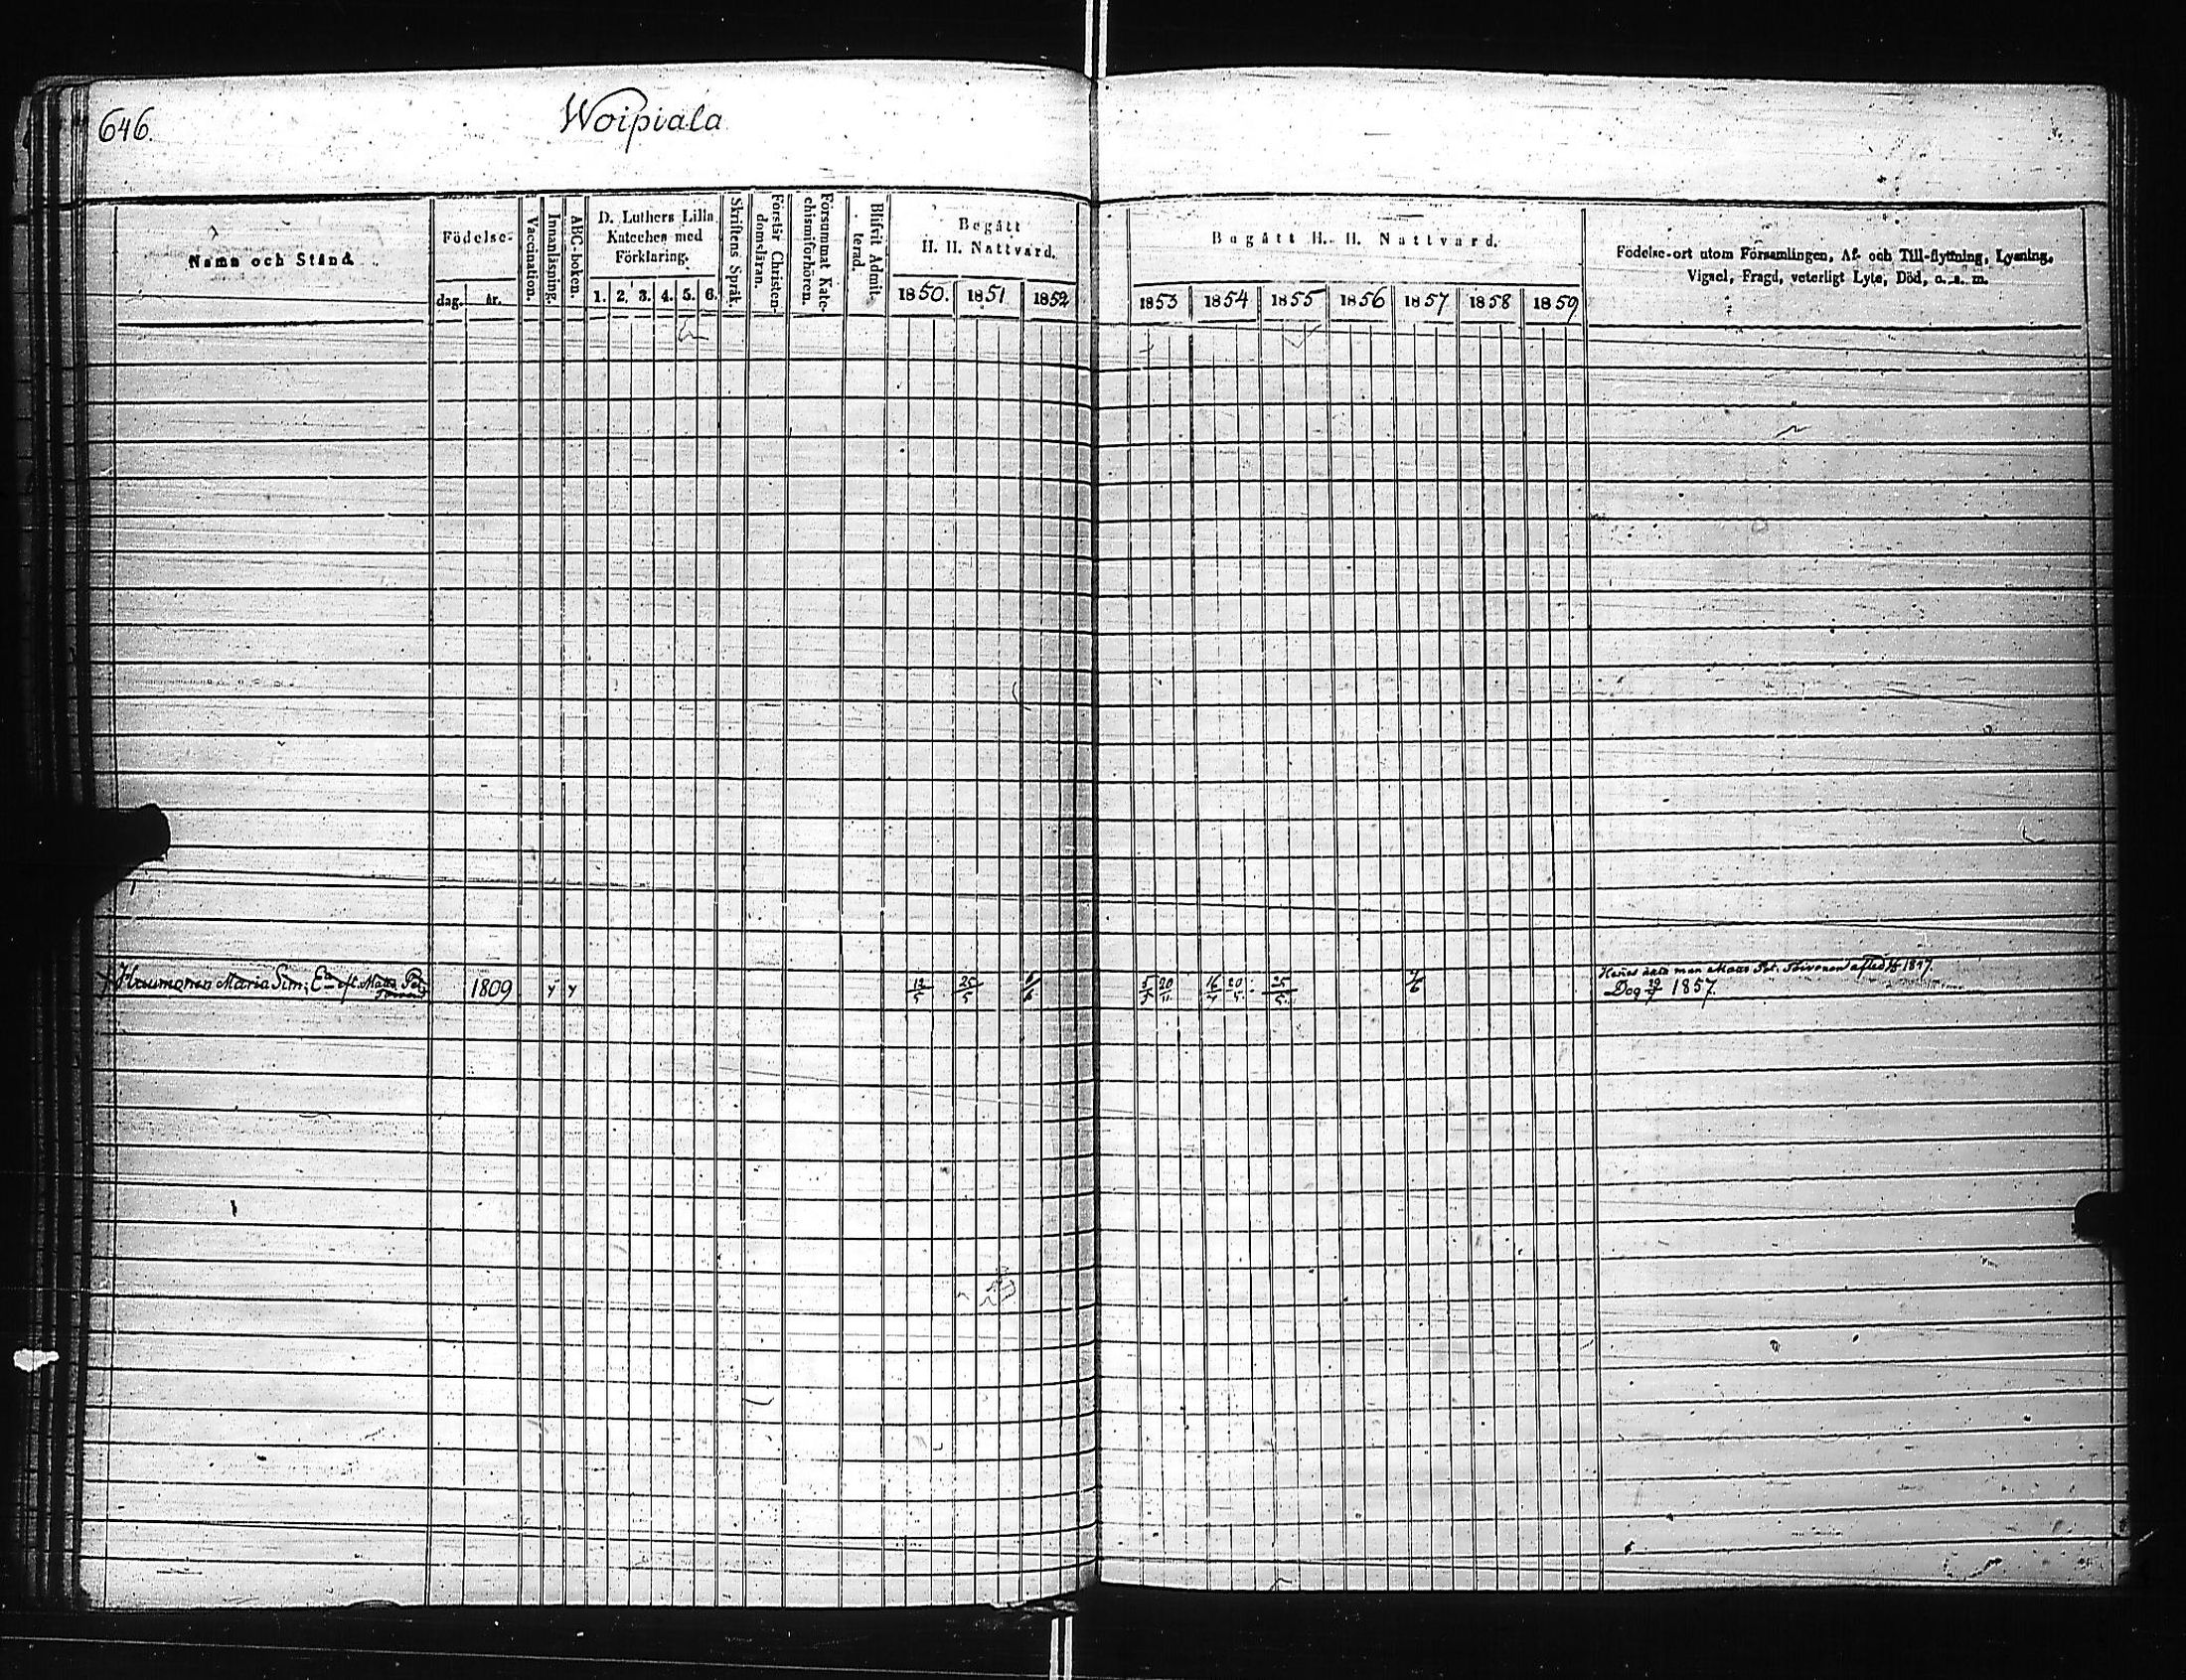 646.
Woipiala
Namn och Stånd.
Födelse-
dag.
år.
Vaccination.
Innanläsning.
ABC-boken.
D. Luthers Lilla
Kateches med
Förklaring.
1. 2. 3. 4. 5. 6.
Skriftens Språk.
Förstår Christen-
domsläran.
Försummat Kate-
chismiförhören.
Blifvit Admit-
terad.
Begått
H. H. Nattvard.
1850. 1851 1852
Begått H. H. Nattvard.
1853 1854 1855 1856 1857 1858 1859
Födelse-ort utom Församlingen, Af- och Till-flyttning, Lysning,
Vigsel, Frägd, veterligt Lyte, Död, o. s. m.
Maria Sim: Ea eft. Matts Pet.
1809
12/5 25/5
5/5 20/11 16/4 20/5 25/5 7/6
man Matts Pet. Toivonen afled 1847.
Dog 29/7 1857.